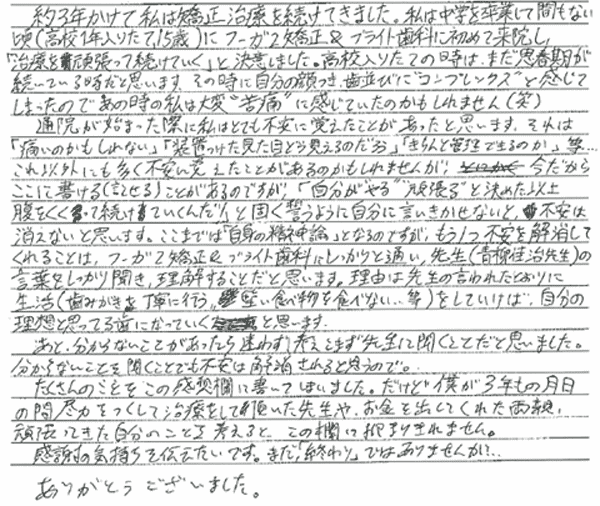 約3年かけて私は矯正治療を続けてきました。私は中学を卒業して間もない
頃(高校1年入りたて15歳)にフーガ2矯正&ブライト歯科に初めて来院し
「治療を頑張って続けていく」と決意しました。高校入りたての時は、まだ思春期が
続いている時だと思います。その時に自分の顔つき、歯並びに"コンプレックス"と感じて
しまったのであの時の私は大変"苦痛"に感じていたのかもしれません(笑)
通院が始まった際に私はとても不安に覚えたことがあったと思います。それは
「痛いのかもしれない」「装置つけた見た目どう見えるのだろ」「きちんと管理できるのか」等…
これ以外にも多く不安に覚えたことがあるのかもしれませんが、今だから
ここに書ける(言える)ことがあるのですが、「自分がやる"頑張る"と決めた以上
腹をくくって続けていくんだ!」と固く誓うように自分に言いきかせないと、不安は
消えないと思います。ここまでは「自身の精神論」となるのですが、もう1つ不安を解消して
くれることは、フーガ2矯正&ブライト歯科にしっかりと通い、先生(青柳佳治先生)の
言葉をしっかり聞き、理解することだと思います。理由は先生の言われたとおりに
生活(歯みがきを丁寧に行う、堅い食べ物を食べない…等)をしていけば、自分の
理想と思ってる歯になっていくと思います。
あと、分からないことがあったら迷わず考えこまず先生に聞くことだと思いました。
分からないことを聞くことでも不安は解消されると思うので。
たくさんのことをこの感想欄に書いてしまいました。だけど僕が3年もの月日
の間尽力をつくして治療をして頂いた先生や、お金を出してくれた両親、
頑張ってきた自分のことを考えると、この欄に収まりきれません。
感謝の気持ちを伝えたいです。まだ「終わり」ではありませんが…
ありがとうございました。